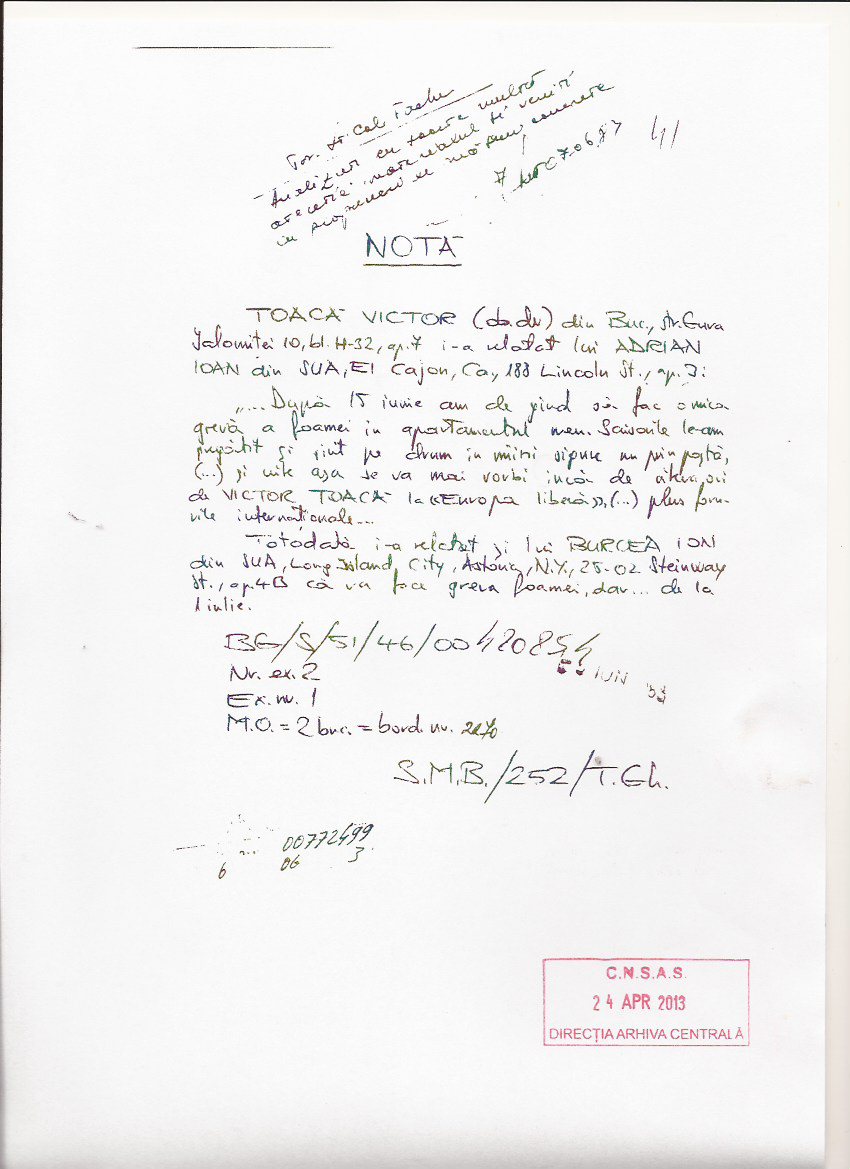 Tov. lt. col.
Analizați cu toată multă
atenție materialul și veniți
cu propuneri de măsuri concrete
07.06.83
41
NOTĂ
TOACĂ VICTOR (do.du) din Buc., str. Gura
Ialomiței 10, bl. H-32, ap. 7 i-a relatat lui ADRIAN
IOAN din SUA, El Cajon, Ca., 188 Lincoln St., ap. 3:
„... După 15 iunie am de gînd să fac o mică
grevă a foamei în apartamentul meu. Scisorile le-am
pregătit și sînt pe drum în mîini sigure nu prin poștă,
(...) și uite așa se va mai vorbi încă de cîteva ori
de VICTOR TOACĂ la «Europa liberă», (...) plus foru-
rile internaționale...
Totodată i-a relatat și lui BURCEA ION
din SUA, Long Island, City, Astoria, N.Y., 25-02 Steinway
St., ap. 4B că va face greva foamei, dar... de la
1 iulie.
BG/S/51/46/00420854
IUN
Nr. ex. 2
Ex. nr. 1
M.O. = 2 buc. = bord. nr. 2270
S.M.B./252/T.Gh.
00772499
6 06 3.
C.N.S.A.S.
24 APR 2013
DIRECȚIA ARHIVA CENTRALĂ